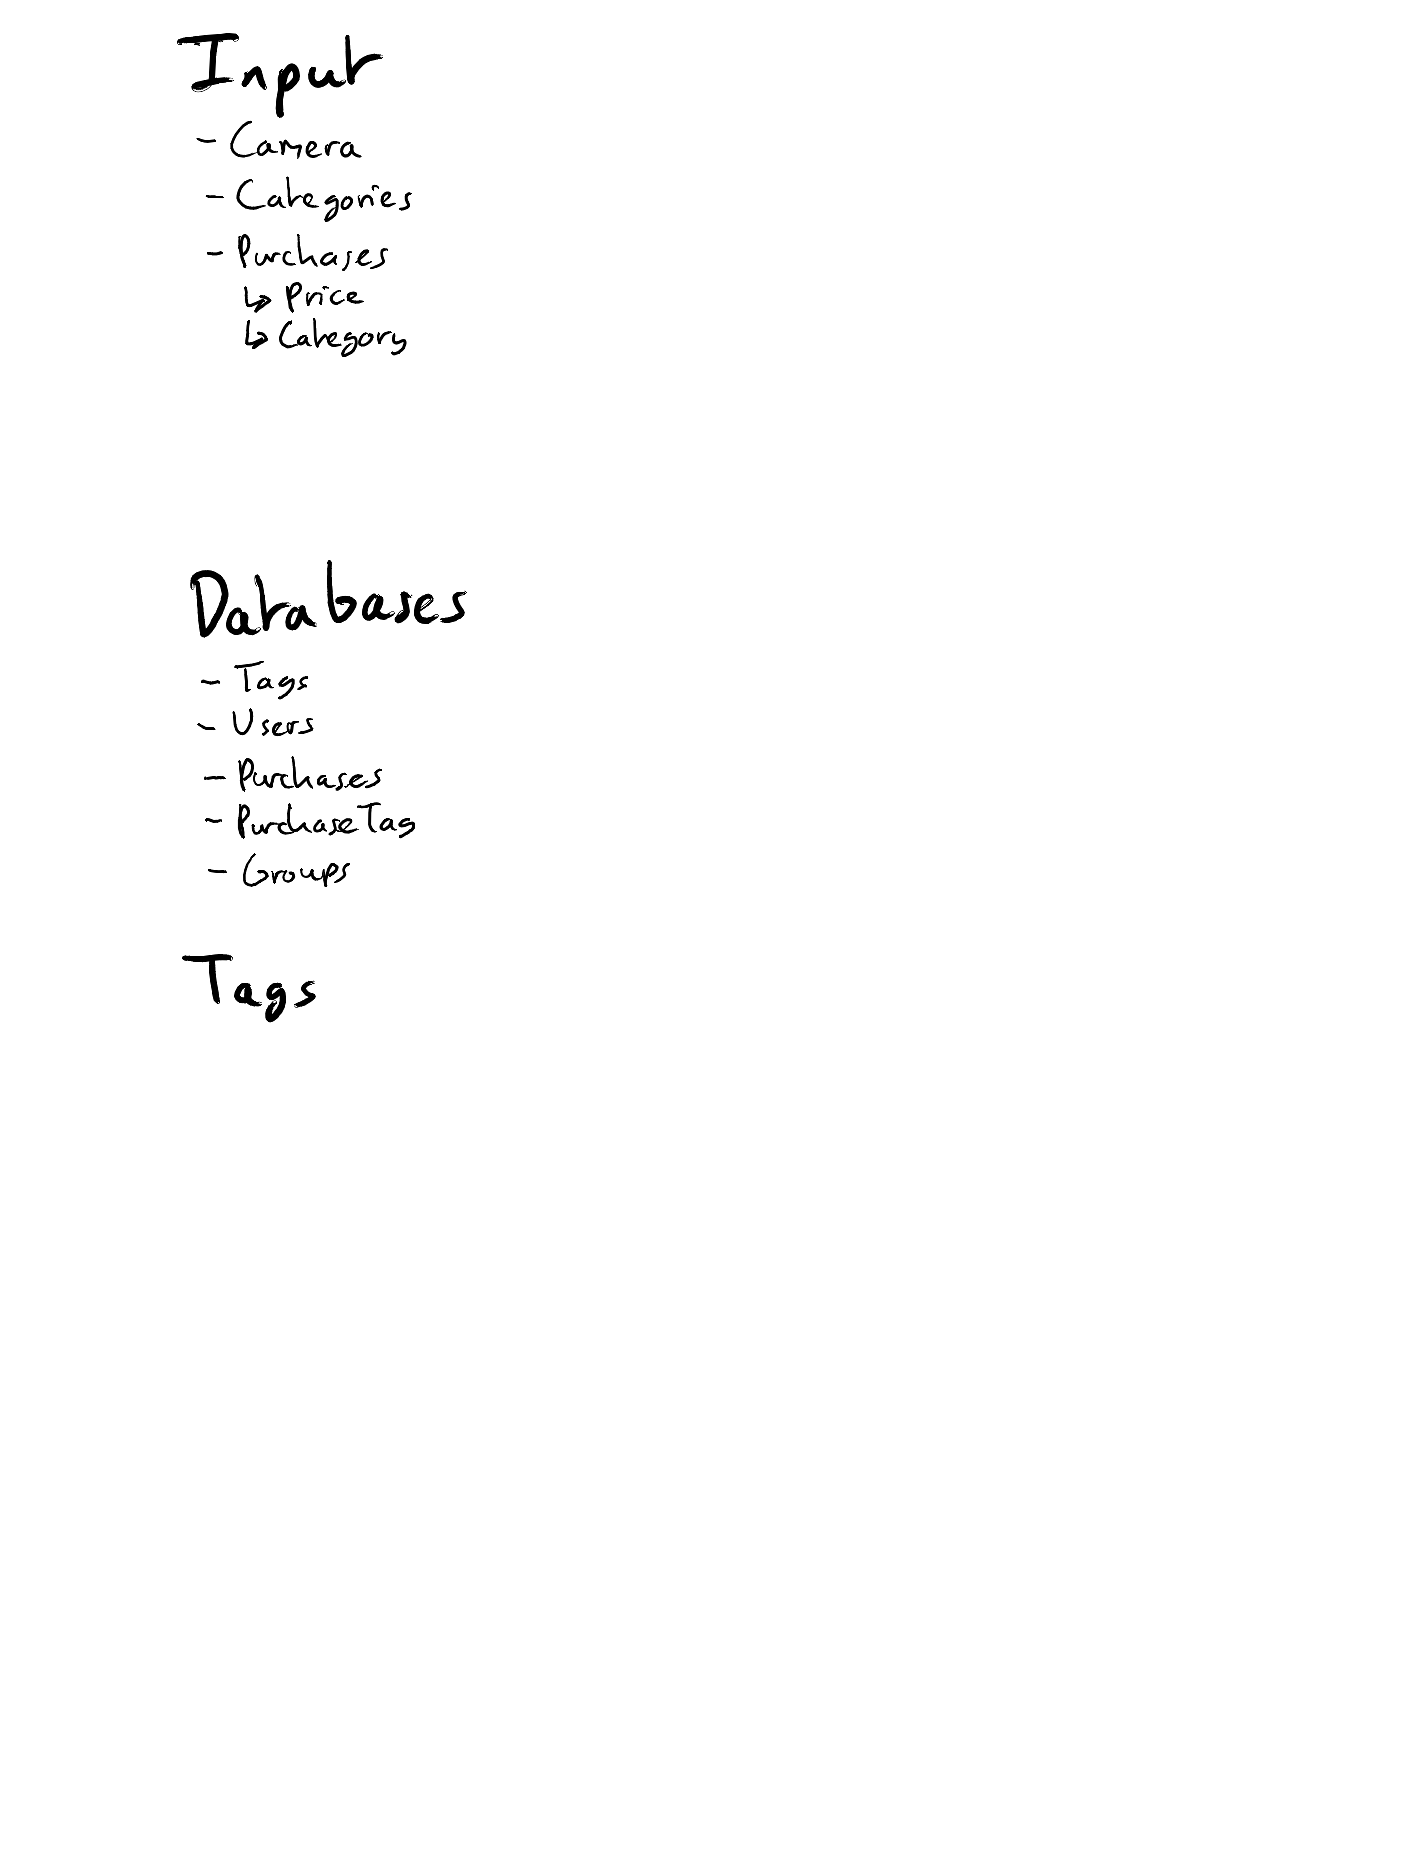 Input
- Camera
- Categories
- Purchases
↳ Price
↳ Category
Databases
- Tags
- Users
- Purchases
- PurchaseTag
- Groups
Tags